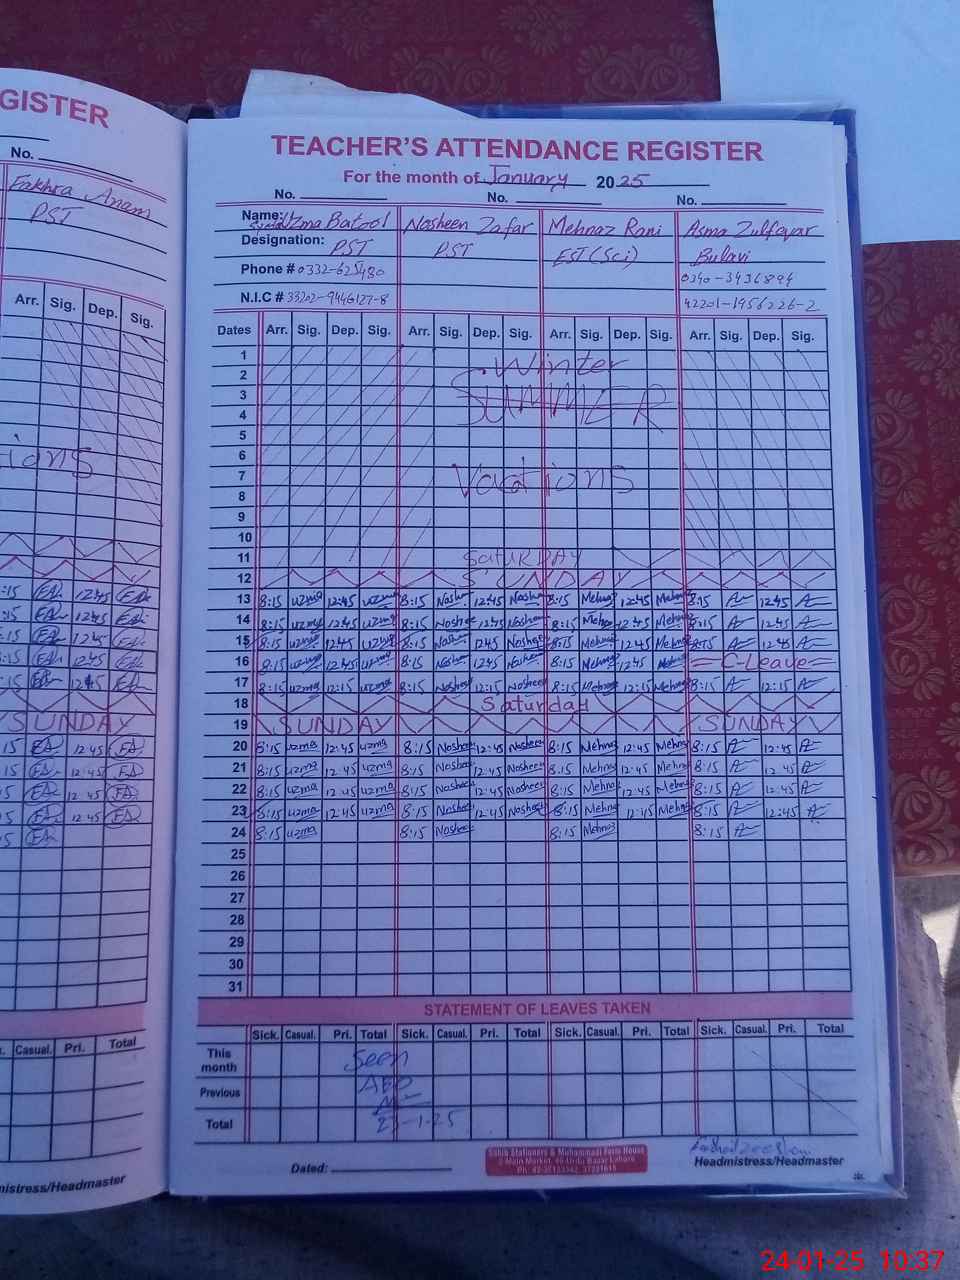 GISTER
No.
Fakhra Anam
PST
Arr. Sig. Dep. Sig.
SUNDAY
Casual. Pri. Total
mistress/Headmaster
TEACHER'S ATTENDANCE REGISTER
For the month of January 2025
No. No. No.
Name: Uzma Batool Nosheen Zafar Mehnaz Rani Asma Zulfeqar
Designation: PST PST EST (Sci) Bulavi
Phone # 0332-625480 0340-3436894
N.I.C # 33202-9446127-8 42201-1956226-2
Dates Arr. Sig. Dep. Sig. Arr. Sig. Dep. Sig. Arr. Sig. Dep. Sig. Arr. Sig. Dep. Sig.
1 Winter
2
3 SUMMER
4
5
6
7 Vacations
8
9
10
11 SATURDAY
12 SUNDAY
13 8:15 uzma 12:45 uzma 8:15 Nosh 12:45 Nosh 8:15 Mehnaz 12:45 Mehnaz 8:15 12:45
14 8:15 uzma 12:45 uzma 8:15 Noshee 12:45 Noshee 8:15 Mehnaz 12:45 Mehnaz 8:15 12:45
15 8:15 uzma 12:45 uzma 8:15 Noshee 12:45 Noshee 8:15 Mehnaz 12:45 Mehnaz 8:15 12:45
16 8:15 uzma 12:45 uzma 8:15 Noshee 12:45 Noshee 8:15 Mehnaz 12:45 Mehnaz C-Leave
17 8:15 uzma 12:15 uzma 8:15 Noshee 12:15 Noshee 8:15 Mehnaz 12:15 Mehnaz 8:15 12:15
18 Saturday
19 SUNDAY SUNDAY
20 8:15 uzma 12:45 uzma 8:15 Noshee 12:45 Noshee 8:15 Mehnaz 12:45 Mehnaz 8:15 12:45
21 8:15 uzma 12:45 uzma 8:15 Noshee 12:45 Noshee 8:15 Mehnaz 12:45 Mehnaz 8:15 12:45
22 8:15 uzma 12:45 uzma 8:15 Noshee 12:45 Noshee 8:15 Mehnaz 12:45 Mehnaz 8:15 12:45
23 8:15 uzma 12:45 uzma 8:15 Noshee 12:45 Noshee 8:15 Mehnaz 12:45 Mehnaz 8:15 12:45
24 8:15 uzma 8:15 Noshee 8:15 Mehnaz 8:15
25
26
27
28
29
30
31
STATEMENT OF LEAVES TAKEN
Sick. Casual. Pri. Total Sick. Casual. Pri. Total Sick. Casual. Pri. Total Sick. Casual. Pri. Total
This month Seen
Previous AEO
Total 23-1-25
Dated:
Sahib Stationers & Muhammadi Form House
Headmistress/Headmaster
24-01-25 10:37